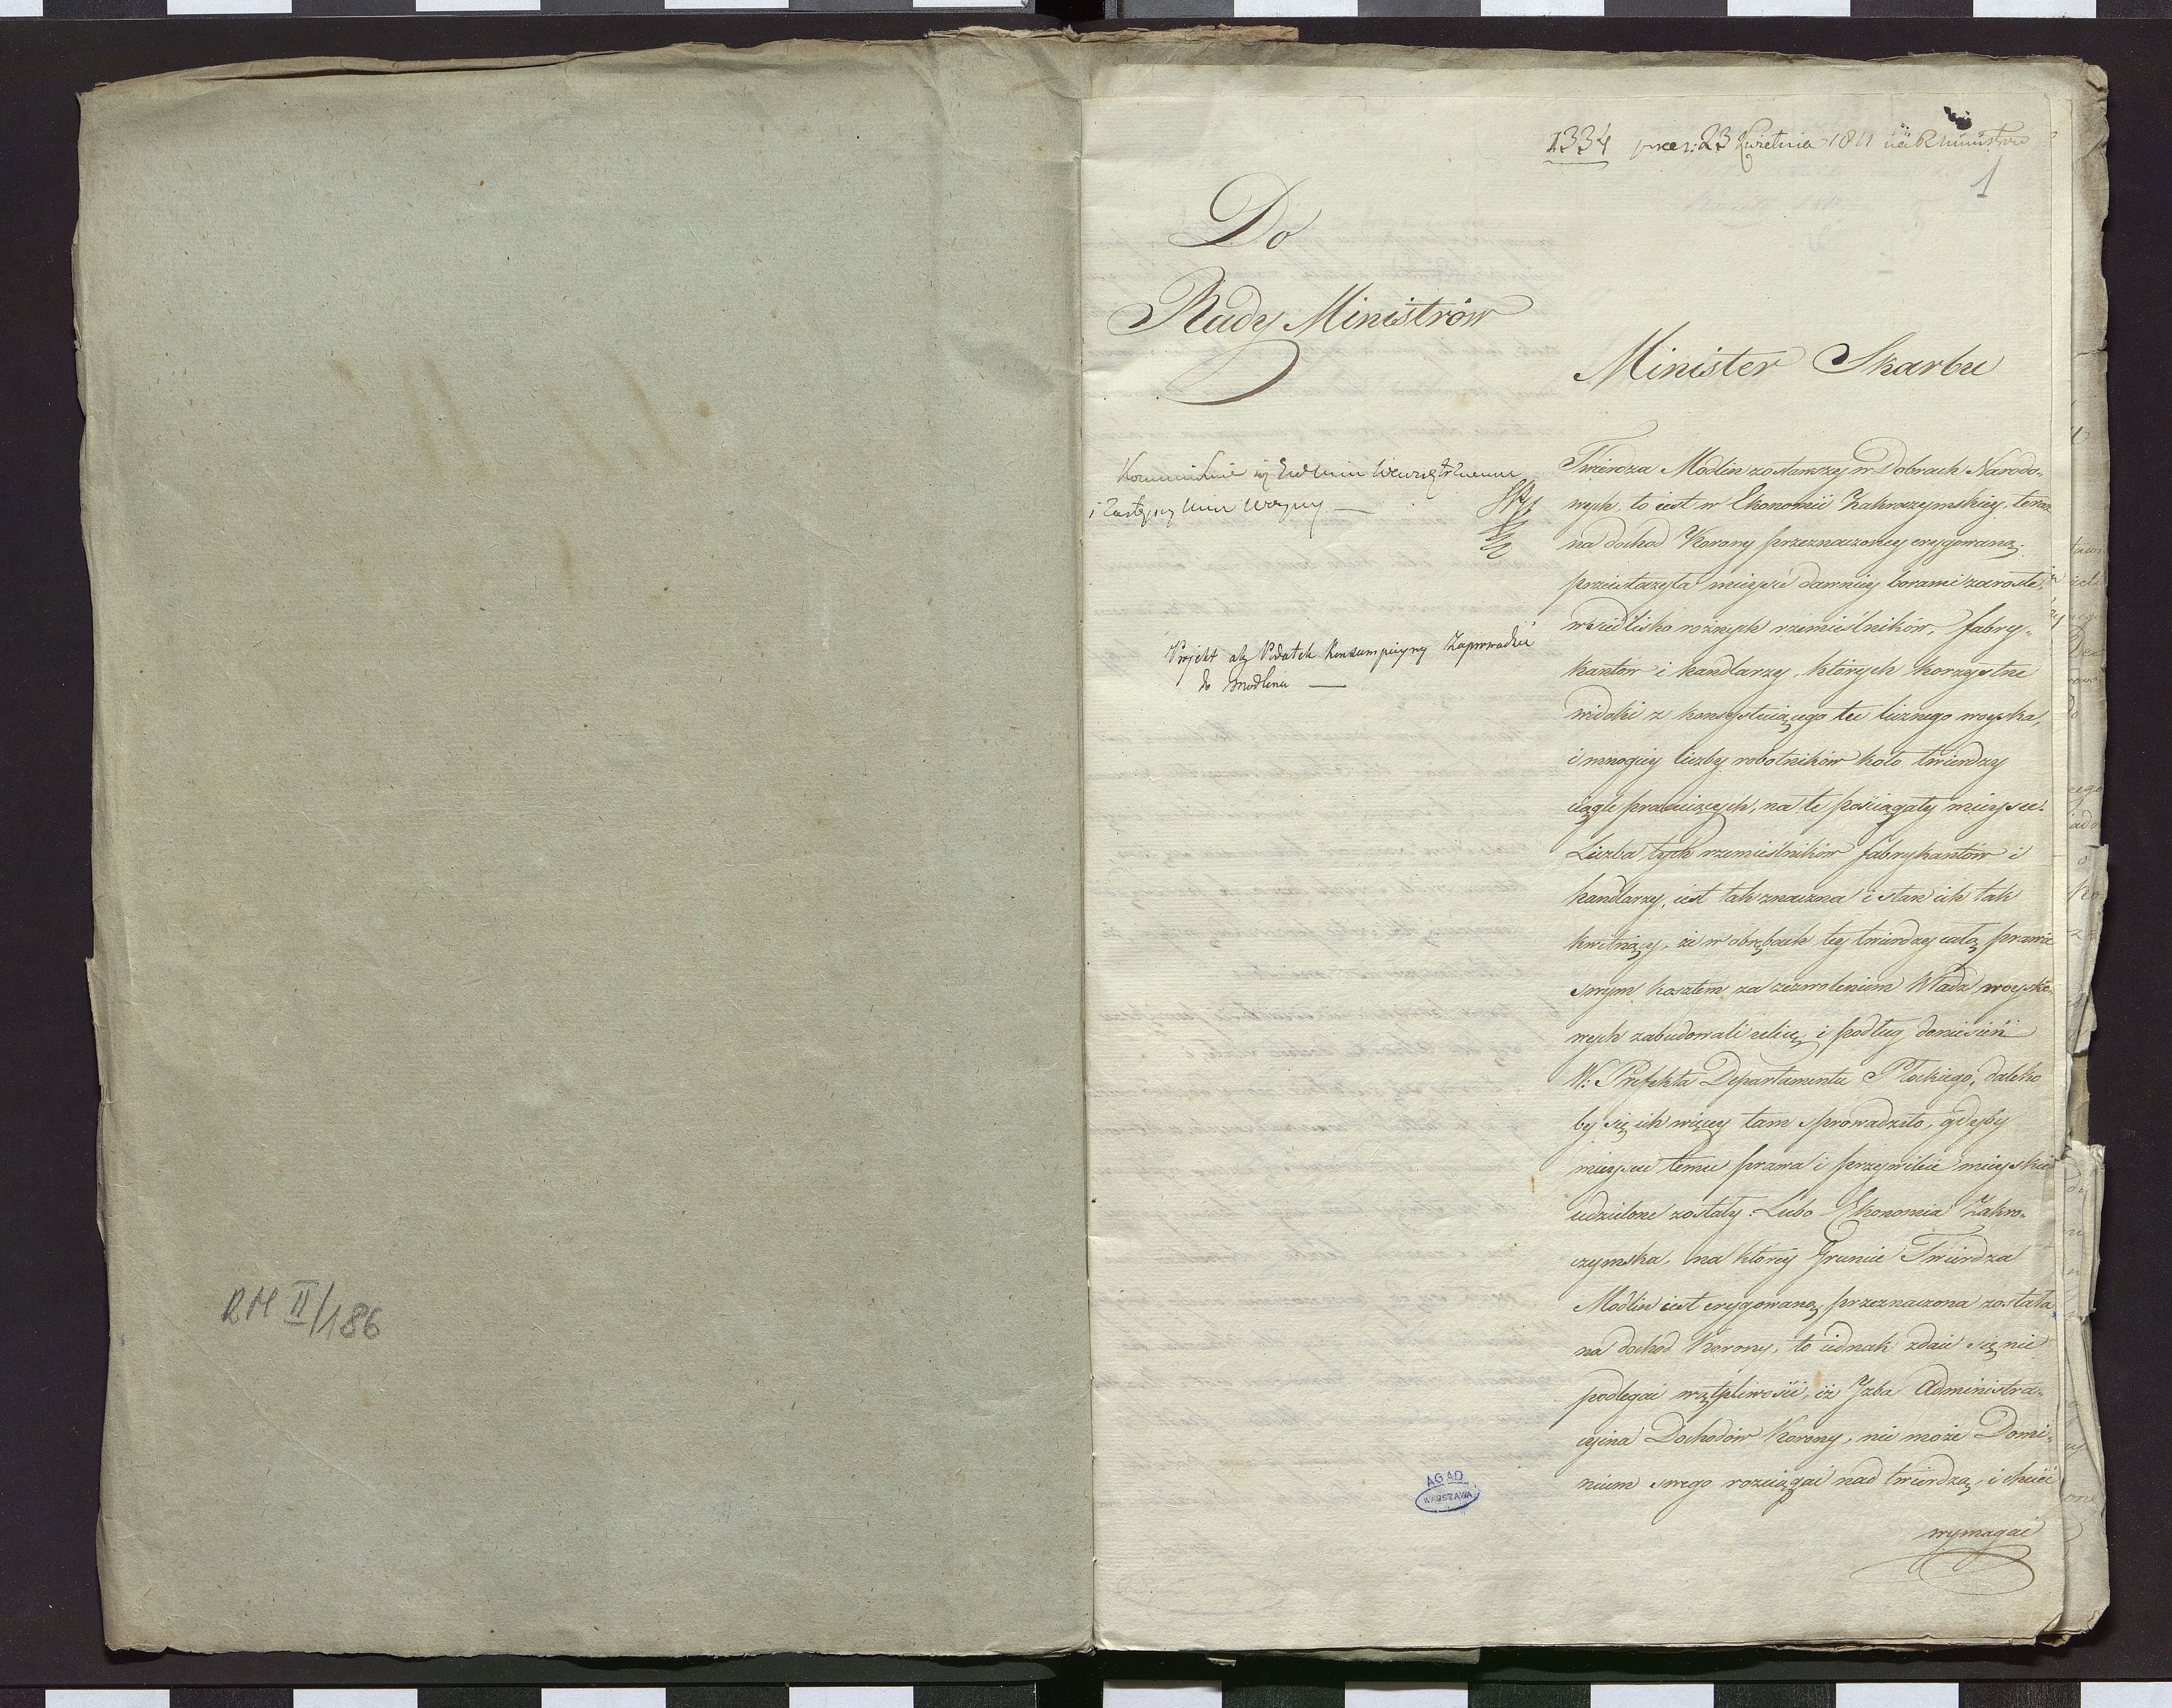 RM II/186
1334 prez: 23 Kwietnia 1811 na R Ministrow
1
Do
Rady Ministrów
Minister Skarbu
i Zastępcy Mini Woyny
Projekt aby Podatek Konsumpcyiny Zaprowadzić
do Modlina
Twierdza Modlin zostawszy w Dobrach Narodo-
wych, to iest w Ekonomii Zakroczymskiey, teraz
na dochod Korony przeznaczoney erygowaną;
przeistoczyła mieysce dawniey borami zarosłe,
w siedlisko rożnych rzemieślników, fabry-
kantow i handlarzy, których korzystne
widoki z konsystuiącego tu licznego woyska,
i mnogiey liczby robotników koło twierdzy
ciągle pracuiących, na te pościągały mieysce.
Liczba tych rzemieślników fabrykantów i
handlarzy, iest tak znaczna i stan ich tak
kwitnący, że w obrębach tey twierdzy całą prawie
swym kosztem za zezwoleniem Władz woysko-
wych zabudowali ulicę, i podług doniesień
W: Prefekta Departamentu Płockiego, daleko
by się ich więcey tam sprowadziło, gdyby
mieyscu temu prawa i przywileie mieyskie
udzielone zostały. Lubo Ekonomia Zakro-
czymska, na którey Gruncie Twierdza
Modlin iest erygowaną, przeznaczona została
na dochod Korony, to iednak zdaie się nie
podlegać wątpliwości, iż Izba Administra-
cyina Dochodów Korony, nie może Domi-
nium swego rozciągać nad twierdzą, i chcieć
wymagać
AGAD
WARSZAWA